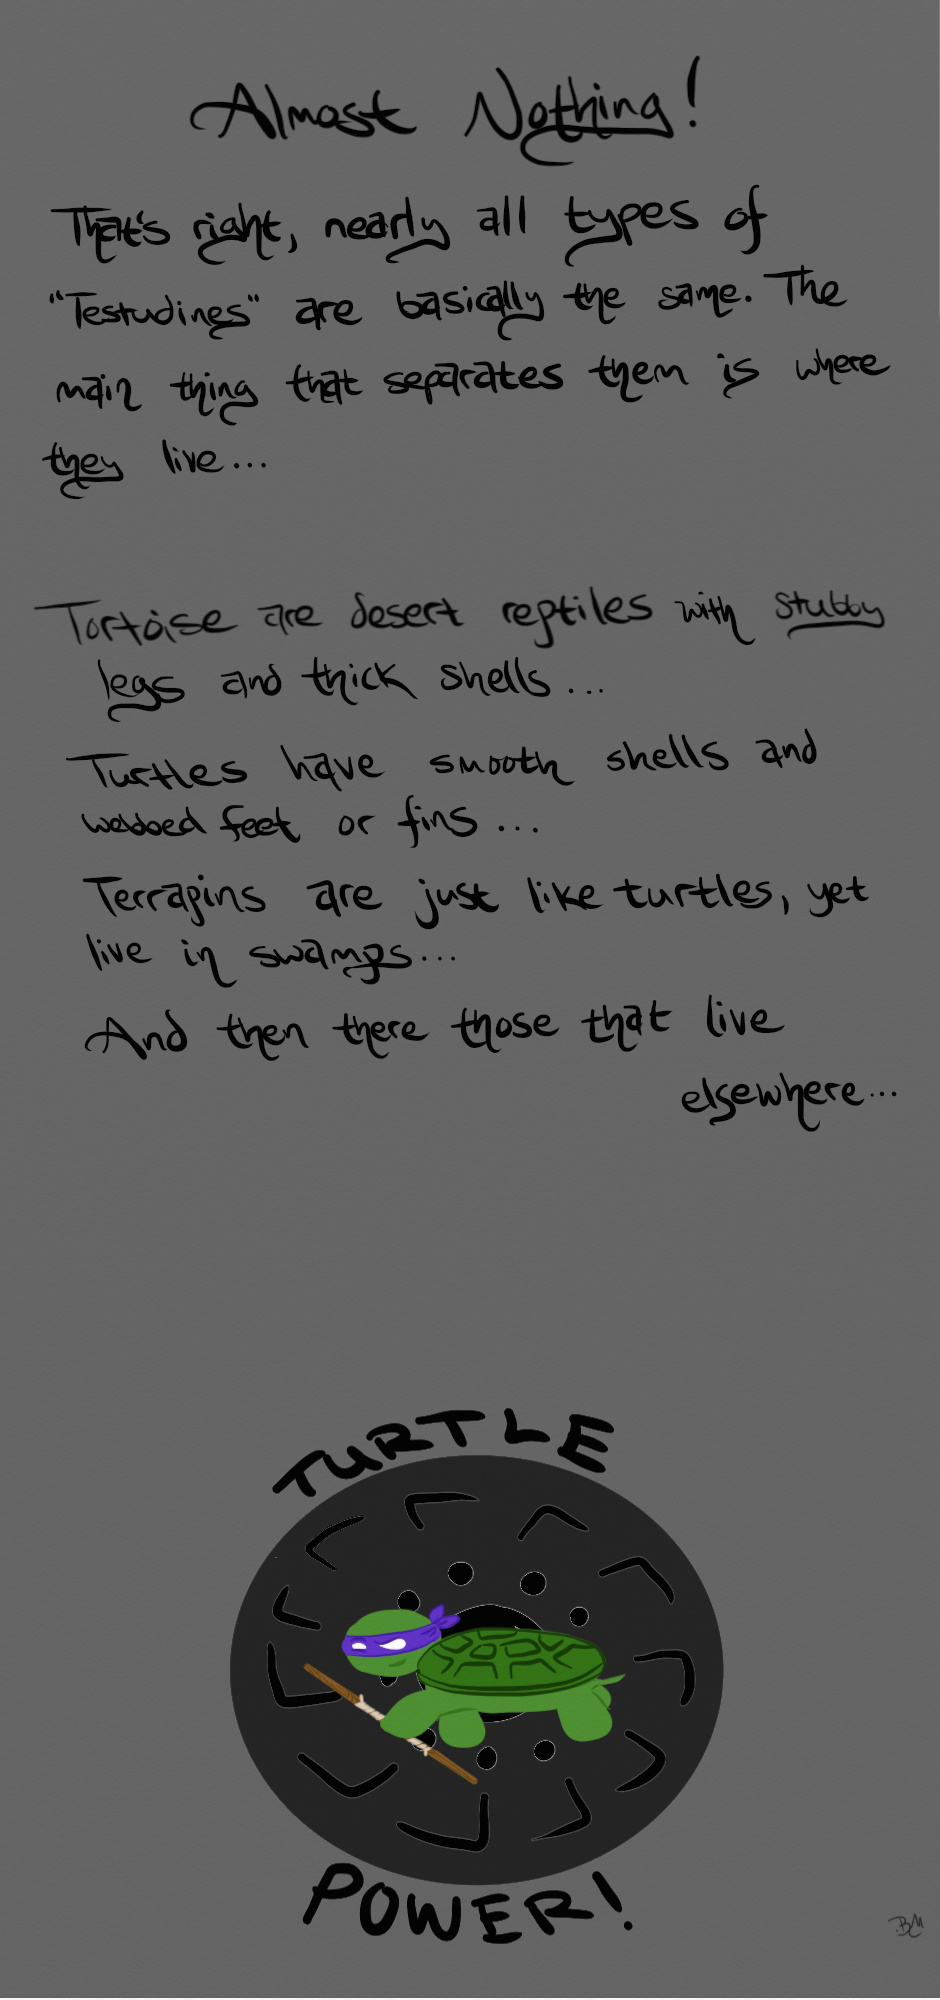 Almost Nothing!
That's right, nearly all types of
"Testudines" are basically the same. The
main thing that separates them is where
they live...
Tortoise are desert reptiles with stubby
legs and thick shells...
Turtles have smooth shells and
webbed feet or fins...
Terrapins are just like turtles, yet
live in swamps...
And then there those that live
elsewhere...
TURTLE
POWER!
BM